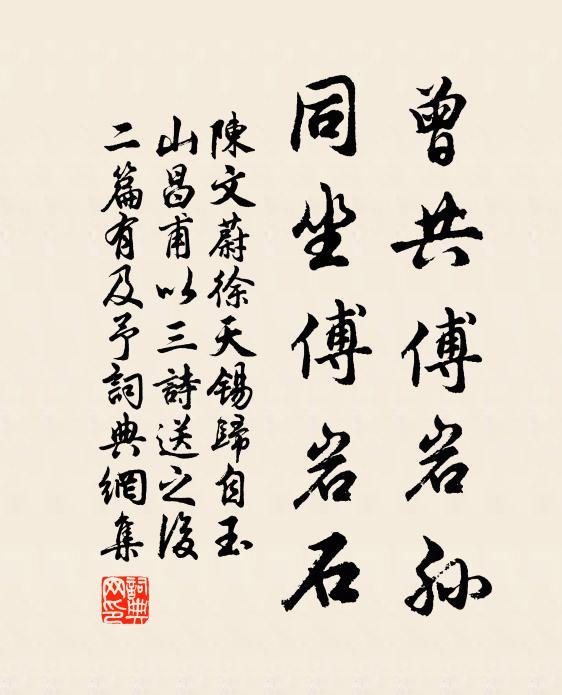 曾共傅岩孙
同坐傅岩石
陳文蔚徐天錫歸自玉
山昌甫以三詩送之後
二篇有及予詞典網集
詞典網印